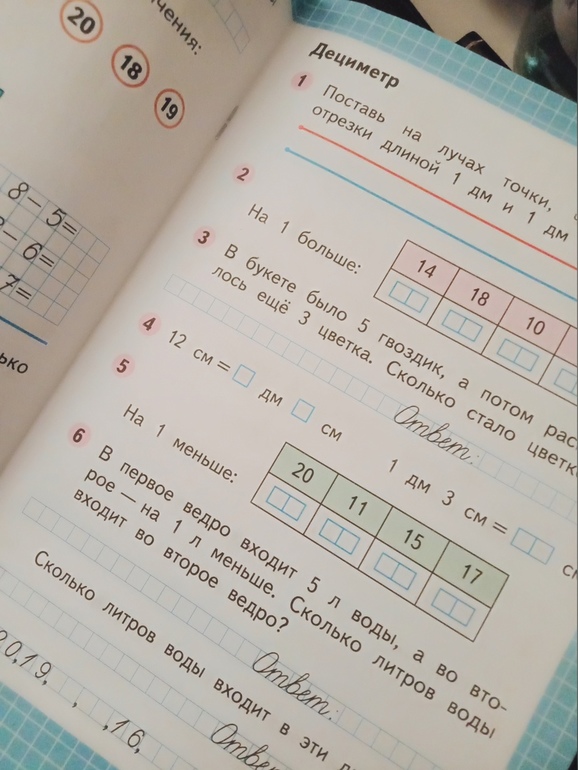 чения:
20
18
19
8-5=
-6=
7=
ько
2019,
, ,16,
Дециметр
1 Поставь на лучах точки,
отрезки длиной 1 дм и 1 дм
2
На 1 больше:
14 18 10
3 В букете было 5 гвоздик, а потом рас
лось ещё 3 цветка. Сколько стало цветк
Ответ:
4 12 см = дм см 1 дм 3 см = см
5
На 1 меньше:
20 11 15 17
6 В первое ведро входит 5 л воды, а во вто-
рое — на 1 л меньше. Сколько литров воды
входит во второе ведро?
Ответ:
Сколько литров воды входит в эти
Ответ